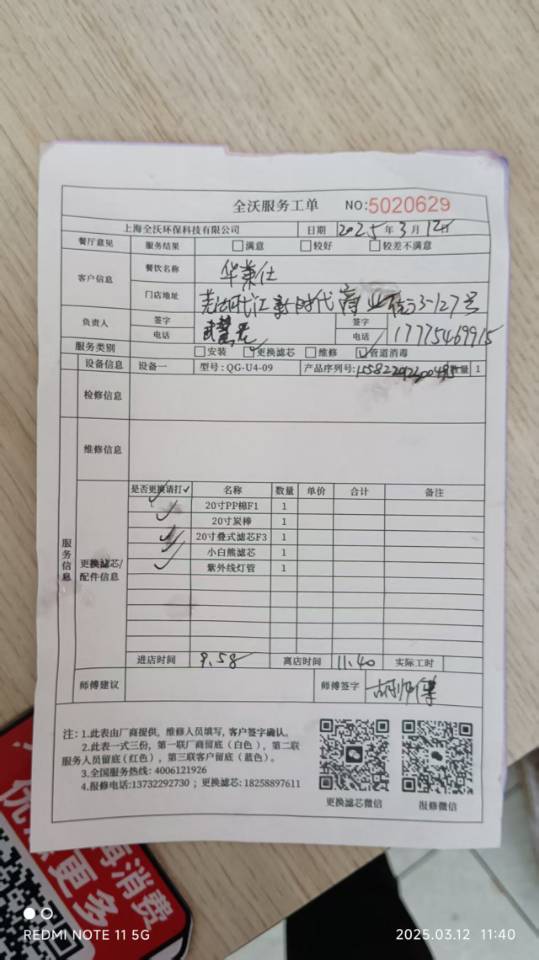 全沃服务工单 NO:5020629
上海全沃环保科技有限公司 日期 2025年3月12日
餐厅意见 服务结果 □满意 □较好 □较差不满意
客户信息 餐饮名称 华莱仕
门店地址 新时代商业街3-127号
负责人 签字 签字
电话 电话 17775469915
服务类别 □安装 ☑更换滤芯 □维修 ☑管道消毒
设备信息 设备一 型号:QG-U4-09 产品序列号: 数量 1
检修信息
维修信息
服务信息
更换滤芯/配件信息
是否更换请打✓ 名称 数量 单价 合计 备注
✓ 20寸PP棉F1 1
✓ 20寸炭棒 1
✓ 20寸叠式滤芯F3 1
✓ 小白熊滤芯 1
✓ 紫外线灯管 1
进店时间 9.58 离店时间 11.40 实际工时
师傅建议 师傅签字
注：1.此表由厂商提供，维修人员填写,客户签字确认。
2.此表一式三份，第一联厂商留底(白色)，第二联
服务人员留底(红色)，第三联客户留底(蓝色)。
3.全国服务热线: 4006121926
4.报修电话:13732292730；更换滤芯:18258897611
更换滤芯微信 报修微信
消费
更多
REDMI NOTE 11 5G
2025.03.12 11:40